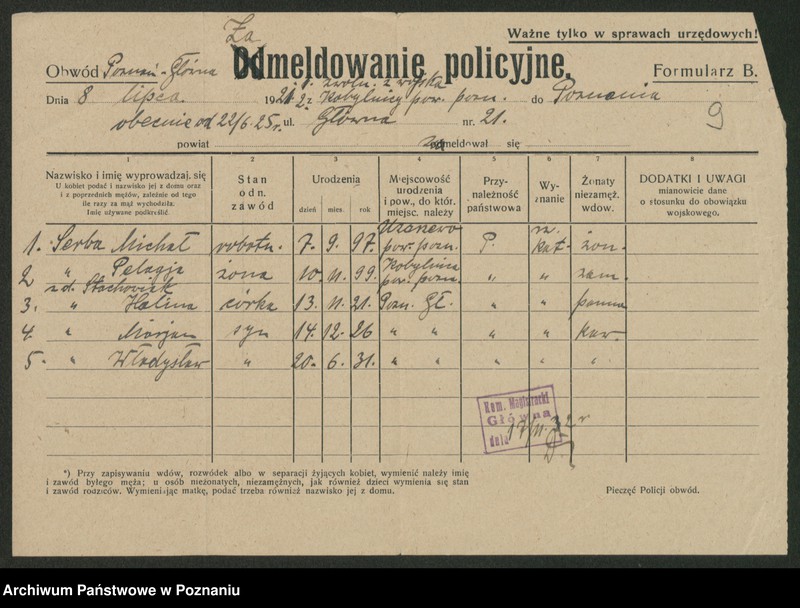 Ważne tylko w sprawach urzędowych!
Za
Odmeldowanie policyjne.
Obwód Poznań-Główna
Formularz B.
1. zwoln. z wojska
Dnia 8 lipca 1921 r. 2. z Kobylnicy pow. pozn. do Poznania
obecnie od 22/6. 25 r. ul. Główna nr. 21.
9
powiat meldował się
1 2 3 4 5 6 7 8
Nazwisko i imię wyprowadzaj. się
U kobiet podać i nazwisko jej z domu oraz
i z poprzednich mężów, zależnie od tego
ile razy za mąż wychodziła.
Imię używane podkreślić.
Stan
odn.
zawód
Urodzenia
dzień mies. rok
Miejscowość
urodzenia
i pow., do któr.
miejsc. należy
Przy-
należność
państwowa
Wy-
znanie
Żonaty
niezamęż.
wdow.
DODATKI I UWAGI
mianowicie dane
o stosunku do obowiązku
wojskowego.
1. Serba Michał robotn. 7. 9. 97. pow. pozn. P. kat. żon.
2 " Pelagja żona 10. 11. 99. Kobylnica pow. pozn. " " zam.
z d. Stachowiak
3. " Halina córka 13. 11. 21. Pozn. Gł. " " panna
4. " Marjan syn 14. 12. 26 " " " " kaw.
5. " Władysław " 20. 6. 31. " " " " "
Kom. Magistracki
Główna
dnia 17/11. 32 r
*) Przy zapisywaniu wdów, rozwódek albo w separacji żyjących kobiet, wymienić należy imię
i zawód byłego męża; u osób nieżonatych, niezamężnych, jak również dzieci wymienia się stan
i zawód rodziców. Wymieniając matkę, podać trzeba również nazwisko jej z domu.
Pieczęć Policji obwód.
Archiwum Państwowe w Poznaniu